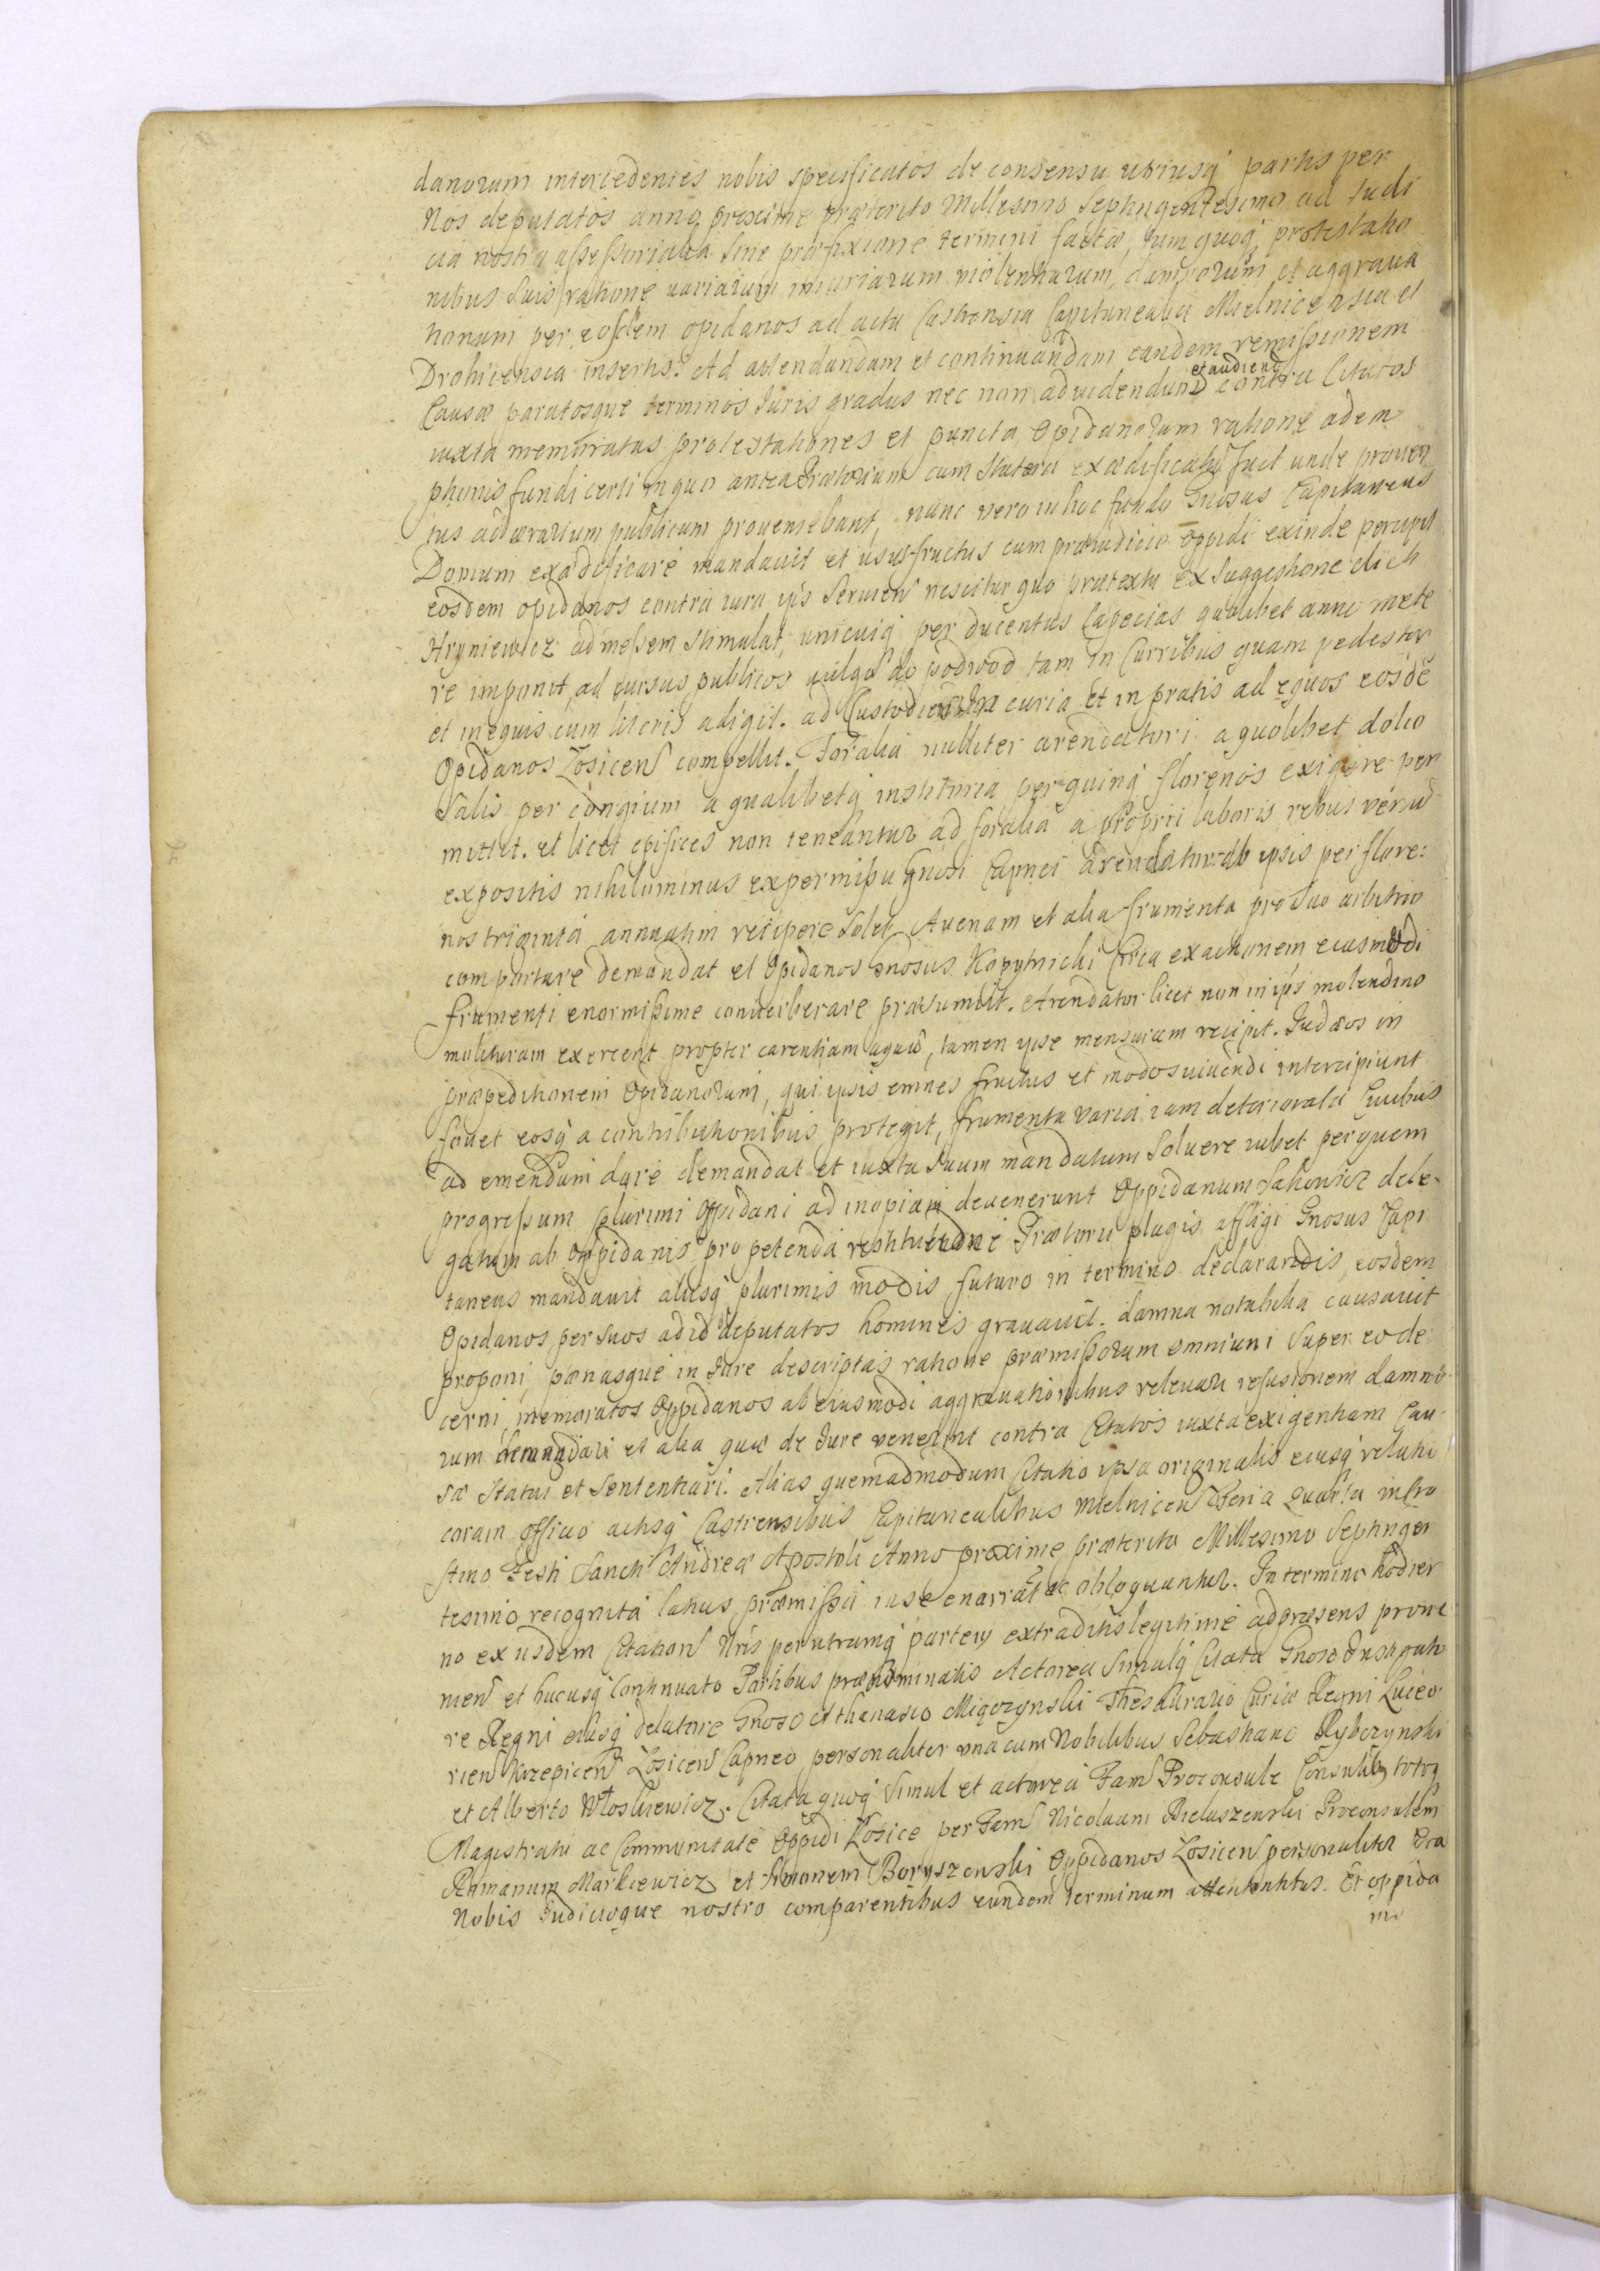 danorum intercedentes nobis specificatos de consensu utriusq partis per
Nos deputatos anno proxime præterito Millesimo Septingentesimo ad Judi
cia nostra assessorialia sine præfixione termini factæ, tum quoq protestatio
nibus suis ratione variarum iniuriarum violentiarum, damnorum et aggrava
tionum per eosdem opidanos ad acta Castrensia Capitanealia Mielnicensia et
Drohicensia insertis. Ad attendandam et continuandam eandem remissionem
Causæ paratosque terminos Juris gradus nec non ad videndum et audiend contra Citatos
iuxta memoratas protestationes et puncta Opidanorum ratione adem
ptionis fundi certi in quo antea Prætorium cum statera exædificatū fuit unde proven
tus ad ærarium publicum proveniebant, nunc vero in hoc fundo Gnosus Capitaneus
Domum exædificare mandavit et usus fructus cum præiudicio oppidi exinde percipit
eosdem opidanos contra iura ips servien nescitur quo prætextu ex suggestione dicti
Hryniewicz ad messem stimulat, unicuiq per ducentas Capecias quolibet anno mete
re imponit, ad cursus publicos vulgo do podwod tam in Curribus quam pedester
et in equis cum literis adigit. ad Custodiam in curia et in pratis ad equos eosdē
Opidanos Łosicen compellit. Foralia nulliter arendatori a quolibet dolio
Salis per congium a qualibetq institoria per quinq florenos exigere per
mittit. et licet opifices non teneantur ad foralia a proprii laboris rebus venum
expositis nihilominus ex permissu Gnosi Capnei Arendator ab ipsis per flore:
nos triginta annuatim recipere solet. Avenam et alia frumenta pro suo arbitrio
comportare demandat et Opidanos Gnosus Kopytnicki circa exactionem eiusmodi
frumenti enormissime converberare præsumit. Arendator licet non in ips molendino
molituram exercent propter carentiam aquæ, tamen ipse mensuram recipit. Judæos in
præpeditionem Opidanorum, qui ipsis omnes fructus et modos vivendi intercipiunt
fovet eosq a contributionibus protegit, frumenta varia iam deteriorata Civibus
ad emendum dare demandat et iuxta suum mandatum solvere iubet per quem
progressum plurimi Opidani ad inopiam devenerunt Oppidanum Sahowicz dele-
gatum ab Oppidanis pro petenda restitutione Prætorii plagis affligi Gnosus Capi
taneus mandavit aliisq plurimis modis futuro in termino declarandis, eosdem
Opidanos per suos ad id deputatos homines gravavit. damna notabilia causavit
proponi, pœnasque in Jure descriptas ratione præmissorum omnium super eo de
cerni, memoratos Oppidanos ab eiusmodi aggravationibus relevari refusionem damno-
rum demandari et alia quæ de Jure venerint contra Citatos iuxta exigentiam Cau-
sæ statui et sententiari. Alias quemadmodum Citatio ipsa originalis eiusq relatio
coram Officio actisq Castrensibus Capitanealibus Mielnicen Feria Quarta in Cra
stino Festi Sancti Andreæ Apostoli Anno proxime præterito Millesimo Septingen
tesimo recognita latius præmissa in se enarrat ac obloquuntur. In termino hodier
no ex iisdem Citation Nris per utramq partem extraditis legitime ad præsens prove
nien et hucusq continuato Partibus prænominatis Actorea simulq Citata Gnoso Instigato
re Regni eiusq delatore Gnoso Athanasio Miączynski Thesaurario Curiæ Regni Luceo
rien Krzepicen Łosicen Capneo personaliter una cum Nobilibus Sebastiano Rybczynski
et Alberto Włoskiewicz. Citata quoq simul et actorea Fam Proconsule Consulib totoq
Magistratu ac Communitate Oppidi Łosice per Fam Nicolaum Bieluszewski Proconsulem
Romanum Markiewicz et Simonem Boryszewski Oppidanos Łosicen personaliter Cra
Nobis Judicioque nostro comparentibus eundem terminum attentantibus. Et oppida
no